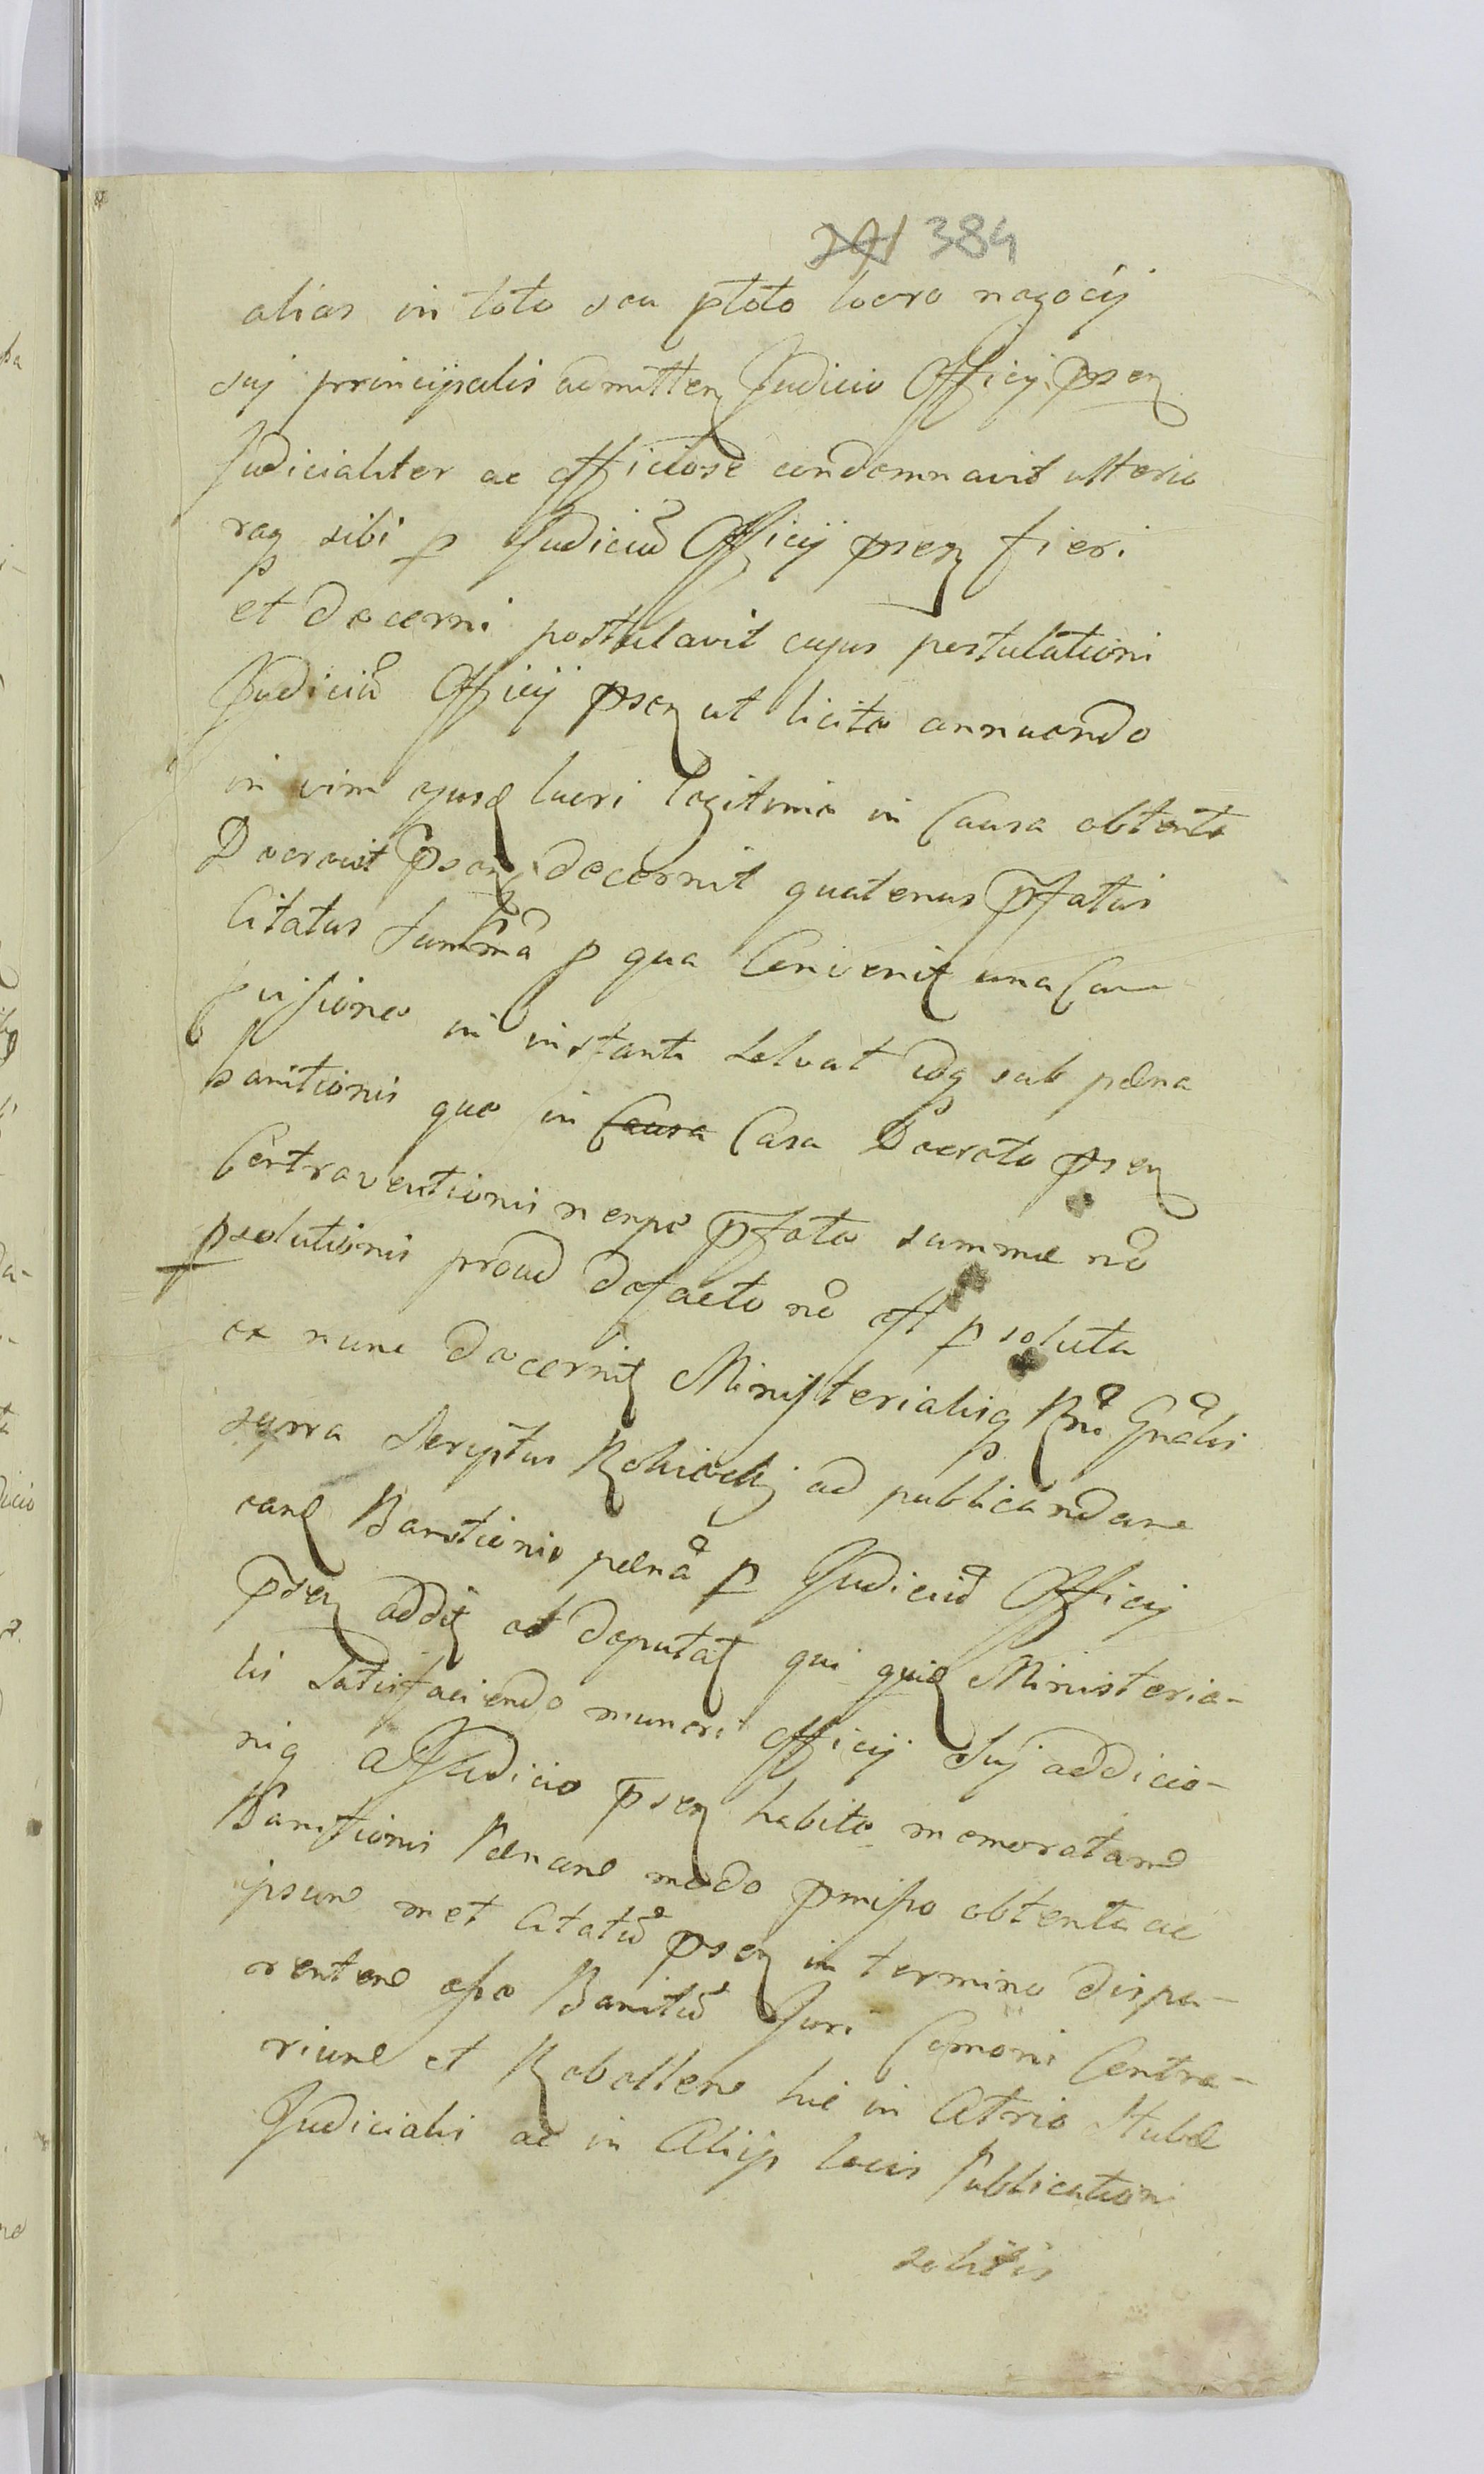 384
alias in toto seu ptoto lucro negocij
suj principalis admitten Judicio Officij psen
Judicialiter ac officiose condemnavit ulterio
raq sibi p Judiciũ Officij psen fieri
et decerni postulavit cujus postulationi
Judiciũ Officij psen ut licite annuendo
in vim ejusd lucri legitime in Causa obtente
Decrevit psen decernit quatenus pfatus
Citatus summã p qua Convenit una Cum
in instanti solvat idq sub pæna
banitionis que in Causa Casu Decreto psen
Contraventionis nempe pfate summæ nõ
psolutionis proud defacto nõ est psoluta
ex nunc decernit Ministerialisq Rni Gnalis
supra scriptus ad publicandam
eand Banitionis pænã p Judiciũ Officij
psen addit et deputat qui quid Ministeria-
lis satisfaciendo muneri officij suj addicio-
niq a Judicio psen habite memoratam
Banitionis Pænam modo pmisso obtenta ac
ipsum met Citatũ psen in termino dispa-
rentem esse Banitũ Juri Comoni Contra-
rium et Rebellem hic in Atrio Stubæ
Judicialis ac in Alijs locis Publicationi
solitis